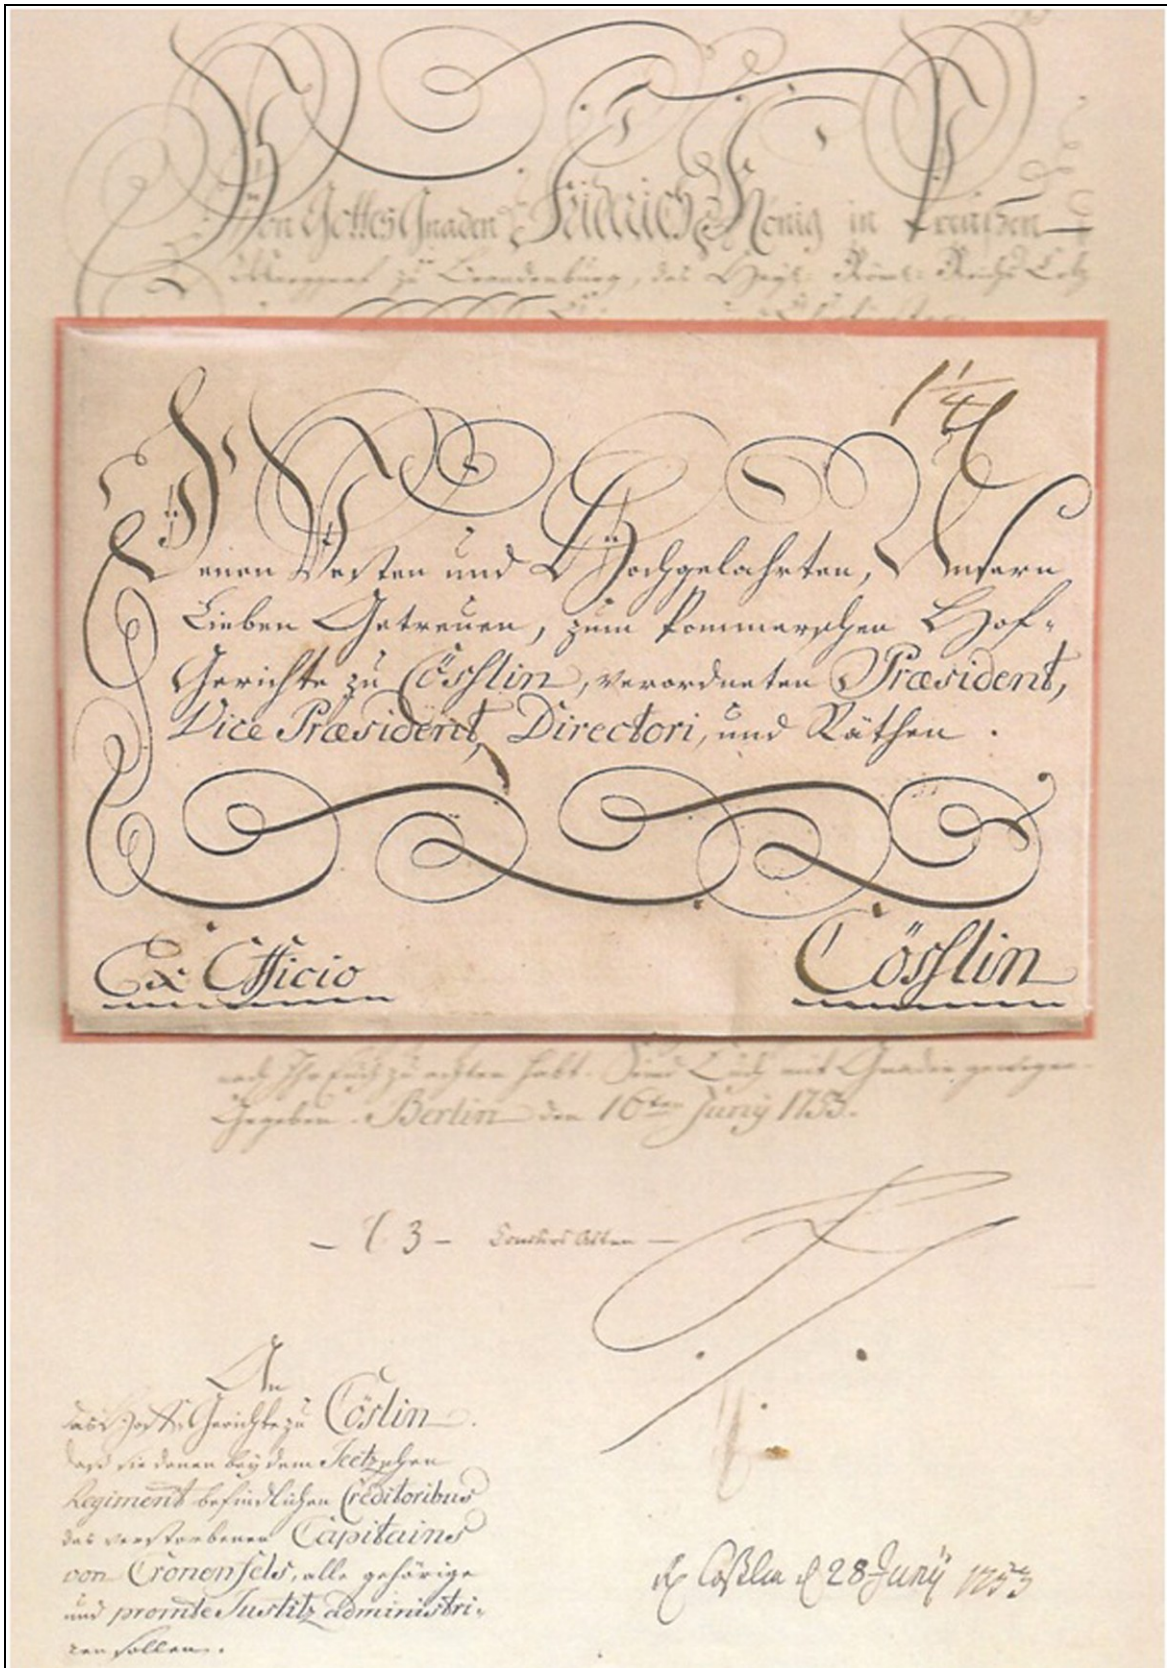 Von Gottes Gnaden Friderich König in Preußen
Marggraf zu Brandenburg, des Heyl: Röm: Reichs Ertz
1 1/4
Denen Vesten und Hochgelahrten, Unsern
Lieben Getreuen, zum Pommerschen Hof-
Gerichte zu Cösslin, verordneten Præsident,
Vice Præsident, Directori, und Räthen.
Ex Officio
Cösslin
nach Ihr Euch zu achten habt. Sind Euch mit Gnaden gewogen.
Gegeben Berlin den 16ten Juny 1753.
3
An
das Hof-Gerichte zu Cöslin.
daß sie denen bey dem Jeetzschen
Regiment befindlichen Creditoribus
des verstorbenen Capitains
von Cronenfels, alle gehörige
und promte Justitz administri-
ren sollen.
Cößlin d 28 Juny 1753